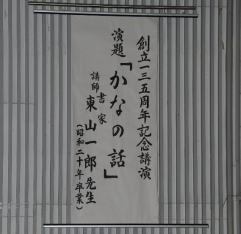 創立一三五周年記念講演
演題「かなの話」
講師 書家
東山一郎先生
(昭和二十年卒業)